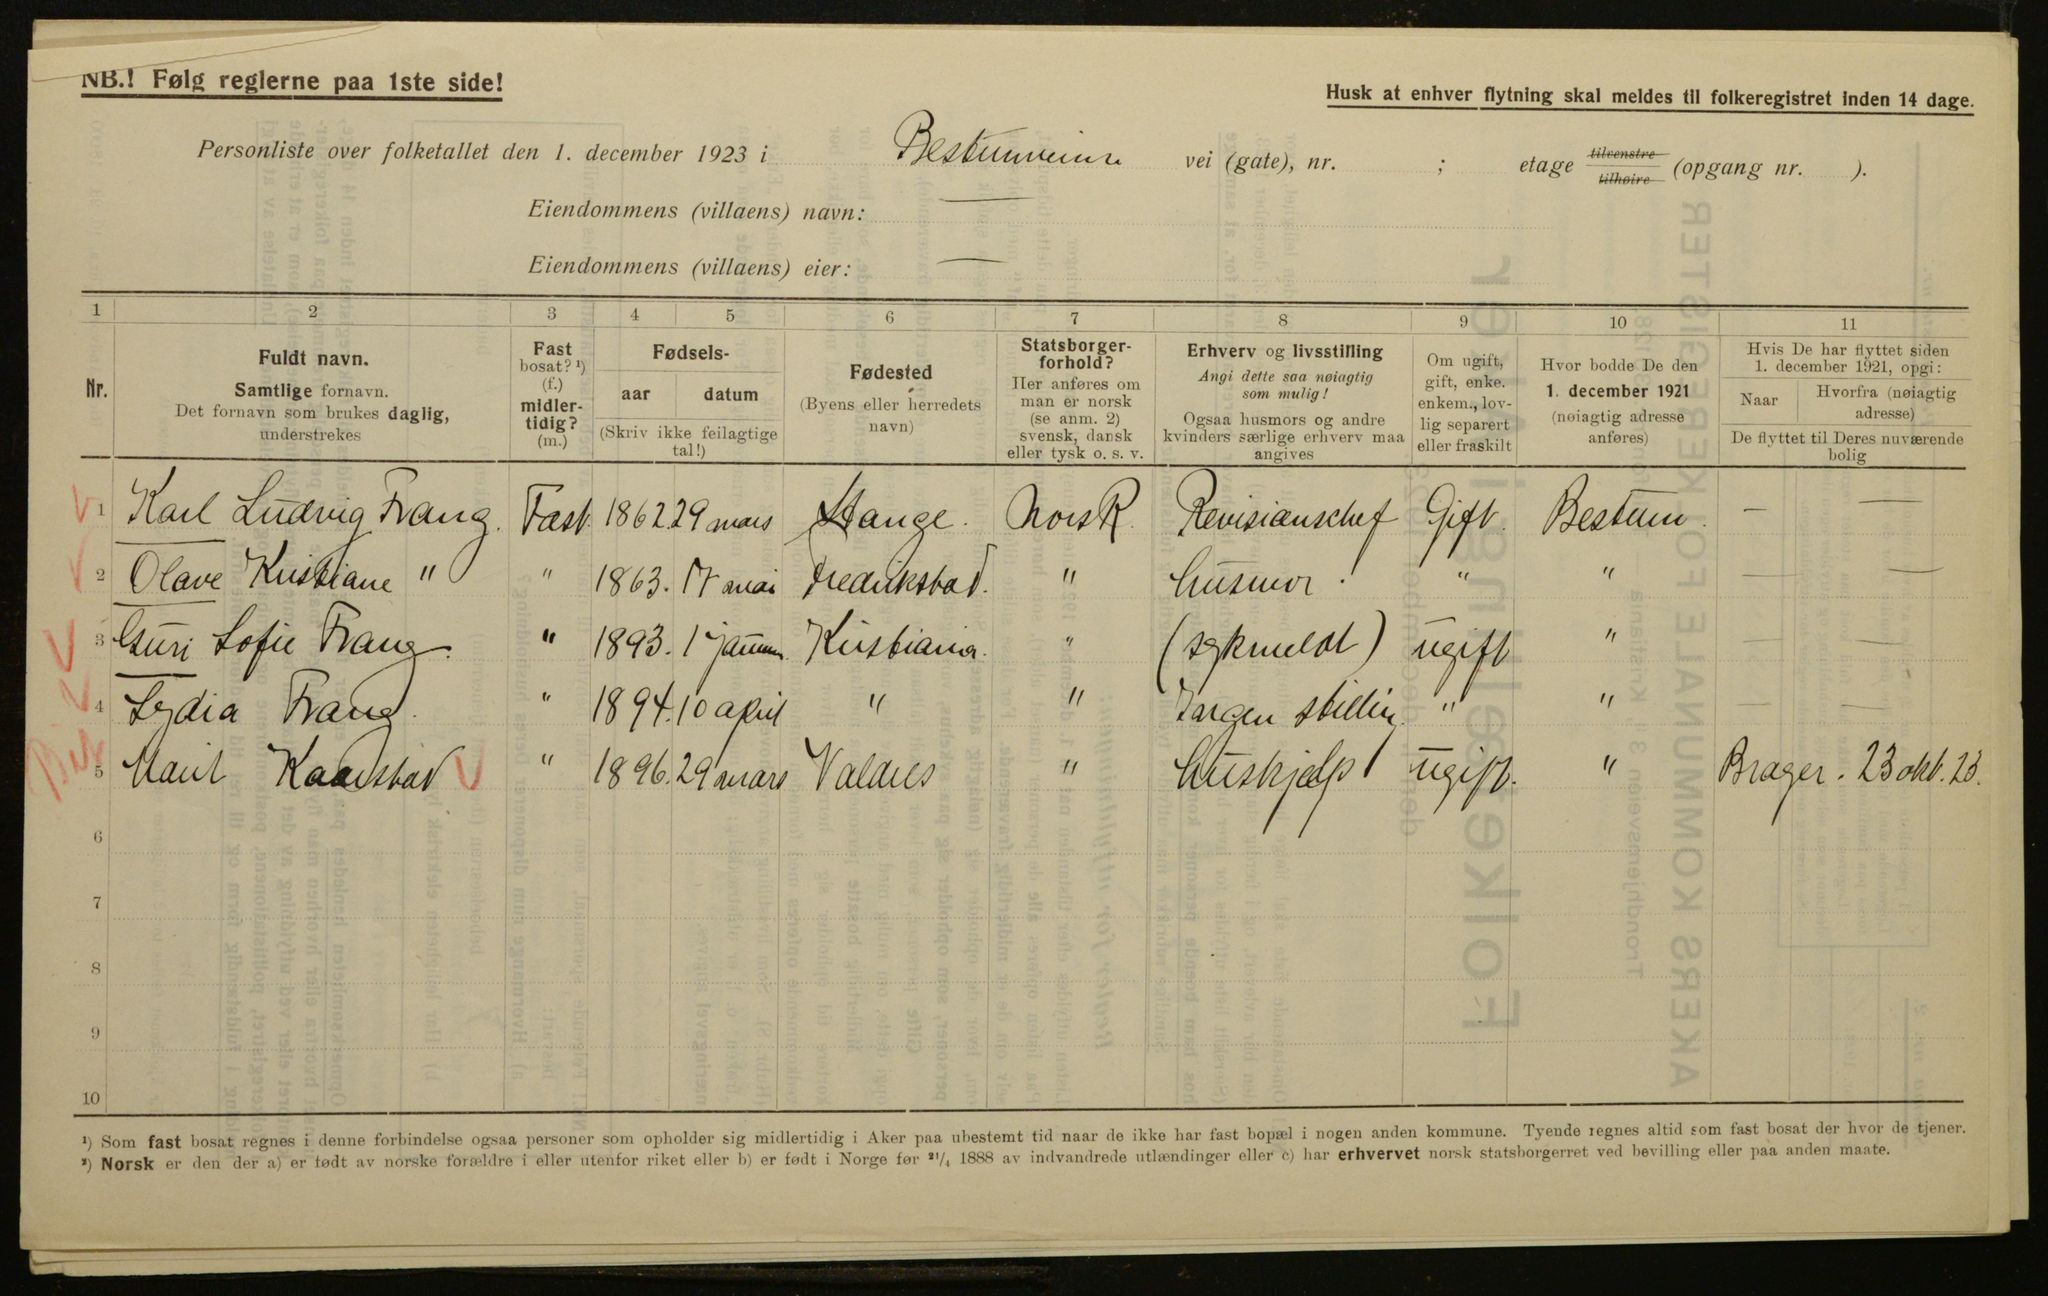 NB.! Følg reglerne paa 1ste side!
Husk at enhver flytning skal meldes til folkeregistret inden 14 dage.
Personliste over folketallet den 1. december 1923 i Bestumveien vei (gate), nr. ; etage tilvenstre tilhøire (opgang nr. ).
Eiendommens (villaens) navn: —
Eiendommens (villaens) eier: —
1 2 3 4 5 6 7 8 9 10 11
Nr.
Fuldt navn.
Samtlige fornavn.
Det fornavn som brukes daglig,
understrekes
Fast
bosat? ¹)
(f.)
midler-
tidig?
(m.)
Fødsels-
aar datum
(Skriv ikke feilagtige
tal!)
Fødested
(Byens eller herredets
navn)
Statsborger-
forhold?
Her anføres om
man er norsk
(se anm. 2)
svensk, dansk
eller tysk o. s. v.
Erhverv og livsstilling
Angi dette saa nøiagtig
som mulig!
Ogsaa husmors og andre
kvinders særlige erhverv maa
angives
Om ugift,
gift, enke.
enkem., lov-
lig separert
eller fraskilt
Hvor bodde De den
1. december 1921
(nøiagtig adresse
anføres)
Hvis De har flyttet siden
1. december 1921, opgi:
Naar Hvorfra (nøiagtig
adresse)
De flyttet til Deres nuværende
bolig
1 Karl Ludvig Frang. Fast. 1862 29 mars Stange. Norsk. Revisianschef Gift. Bestum. — —
2 Olave Kristiane " " 1863. 17 mai Fredrikstad. " Husmor. " " — —
3 Guri Sofie Frang. " 1893. 1 januar. Kristiania. " (sykmeldt) ugift " — —
4 Lydia Frang. " 1894. 10 april " " Ingen stilling. " " — —
5 Marit Kaarstad " 1896. 29 mars Valdres " Huskjelp ugift. " Brager. 23 okt. 23.
6
7
8
9
10
¹) Som fast bosat regnes i denne forbindelse ogsaa personer som opholder sig midlertidig i Aker paa ubestemt tid naar de ikke har fast bopæl i nogen anden kommune. Tyende regnes altid som fast bosat der hvor de tjener.
²) Norsk er den der a) er født av norske forældre i eller utenfor riket eller b) er født i Norge før ²¹/₄ 1888 av indvandrede utlændinger eller c) har erhvervet norsk statsborgerret ved bevilling eller paa anden maate.